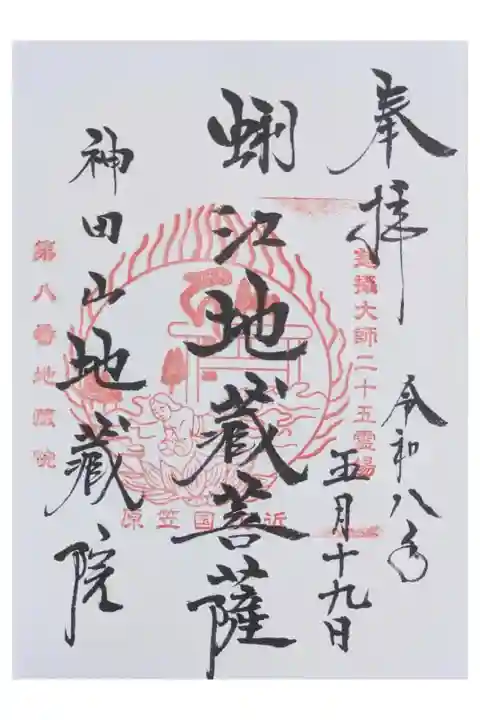 奉拝
令和八年
五月十九日
大師二十五霊場
蜊江地蔵菩薩
近 国笠原
神田山地蔵院
第八番地蔵院